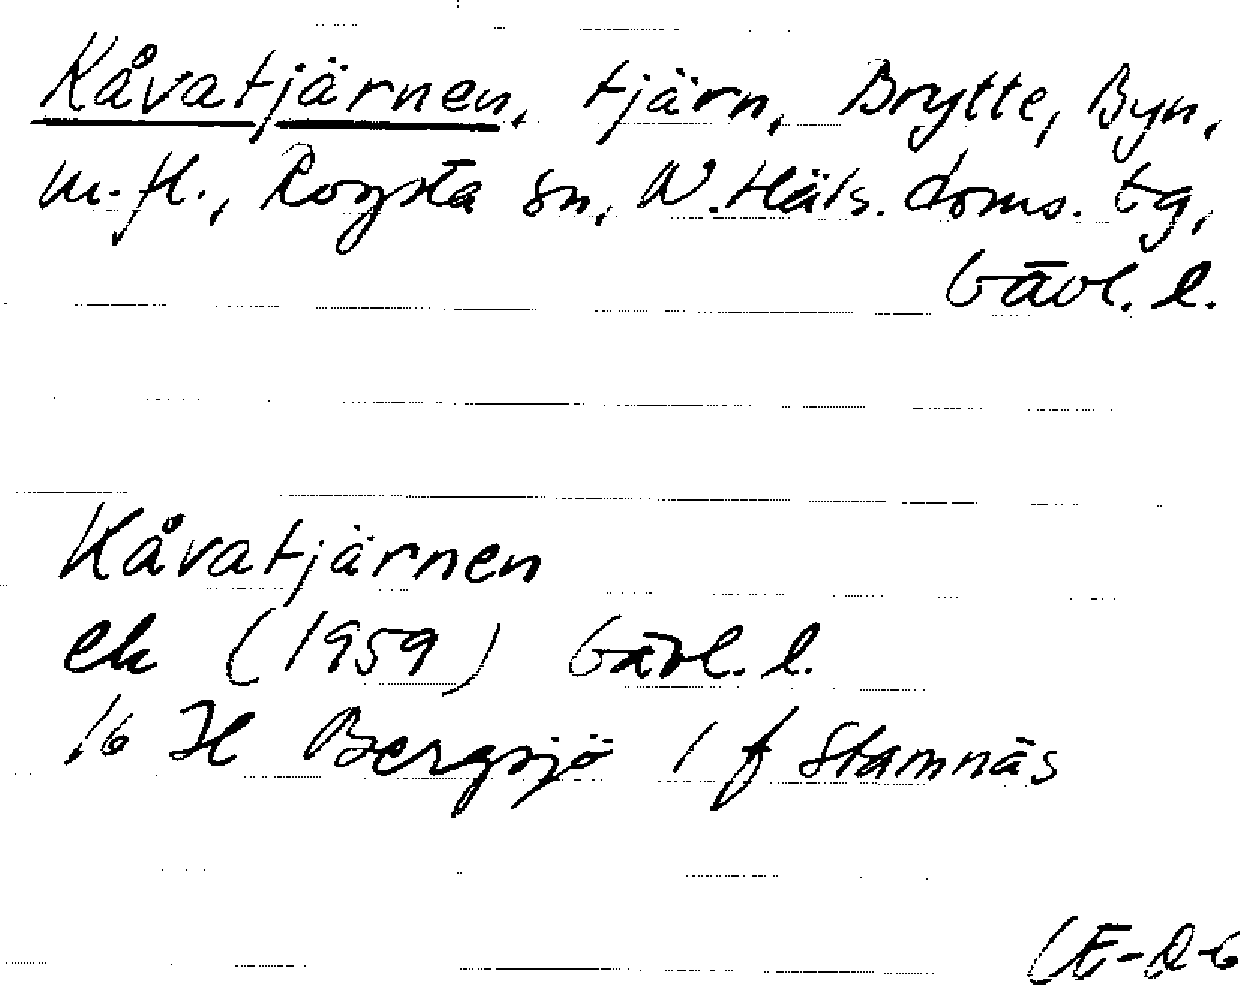 Kåvatjärnen, tjärn, Brytte, Byn,
m.fl., Rogsta sn, N. Häls. doms. tg,
Gävl. l.
Kåvatjärnen
ek (1959) Gävl. l.
16 H Bergsjö 1 f Stamnäs
(E-R-6